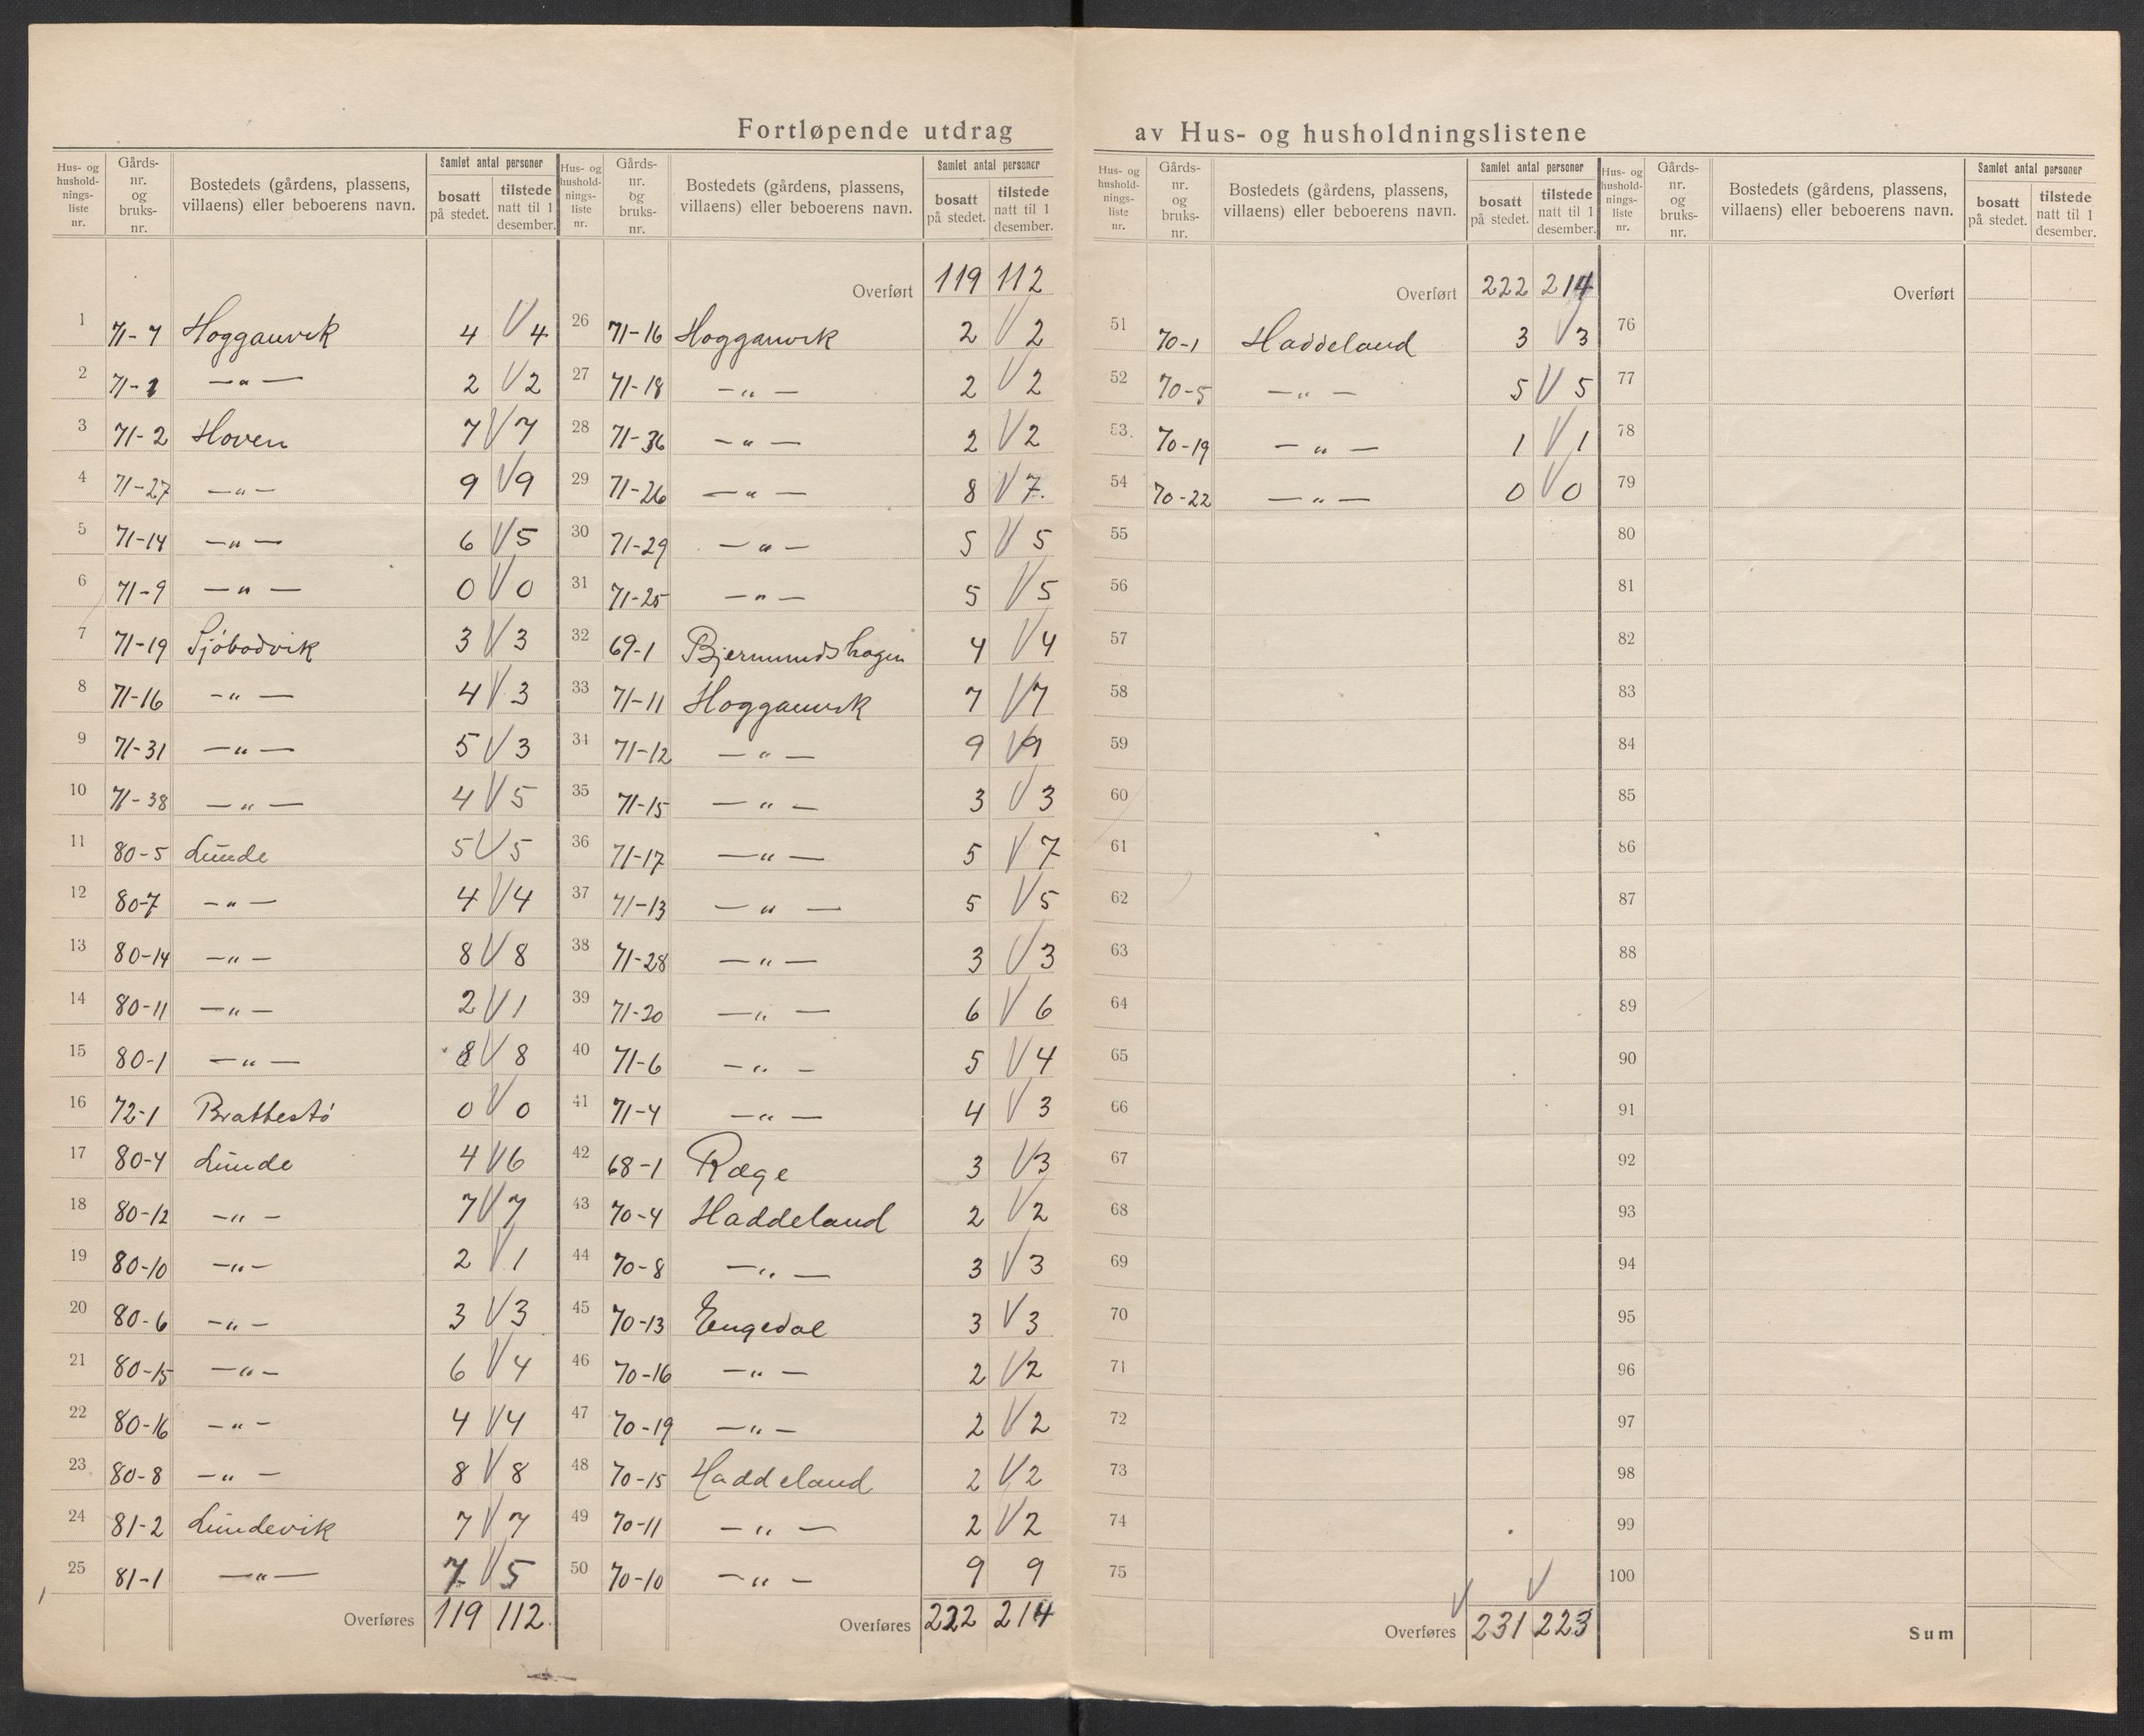 Fortløpende utdrag av Hus- og husholdningslistene
Hus- og husholdningsliste nr. | Gårdsnr. og bruksnr. | Bostedets (gårdens, plassens, villaens) eller beboerens navn. | Samlet antal personer | bosatt på stedet. | tilstede natt til 1 desember.
1 71-7 Hogganvik 4 V 4
2 71-1 —„— 2 V 2
3 71-2 Hoven 7 V 7
4 71-27 —„— 9 V 9
5 71-14 —„— 6 V 5
6 71-9 —„— 0 V 0
7 71-19 Sjøbodvik 3 V 3
8 71-16 —„— 4 V 3
9 71-31 —„— 5 V 3
10 71-38 —„— 4 V 5
11 80-5 Lunde 5 V 5
12 80-7 —„— 4 V 4
13 80-14 —„— 8 V 8
14 80-11 —„— 2 V 1
15 80-1 —„— 8 V 8
16 72-1 Brattestø 0 V 0
17 80-4 Lunde 4 V 6
18 80-12 —„— 7 V 7
19 80-10 —„— 2 V 1
20 80-6 —„— 3 V 3
21 80-15 —„— 6 V 4
22 80-16 —„— 4 V 4
23 80-8 —„— 8 V 8
24 81-2 Lundevik 7 V 7
25 81-1 —„— 7 V 5
Overføres 119 112.
Hus- og husholdningsliste nr. | Gårdsnr. og bruksnr. | Bostedets (gårdens, plassens, villaens) eller beboerens navn. | Samlet antal personer | bosatt på stedet. | tilstede natt til 1 desember.
Overført 119 112
26 71-16 Hogganvik 2 V 2
27 71-18 —„— 2 V 2
28 71-36 —„— 2 V 2
29 71-26 —„— 8 V 7.
30 71-29 —„— 5 V 5
31 71-25 —„— 5 V 5
32 69-1 Bjermundshagen 4 V 4
33 71-11 Hogganvik 7 V 7
34 71-12 —„— 9 V 9
35 71-15 —„— 3 V 3
36 71-17 —„— 5 V 7
37 71-13 —„— 5 V 5
38 71-28 —„— 3 V 3
39 71-20 —„— 6 V 6
40 71-6 —„— 5 V 4
41 71-4 —„— 4 V 3
42 68-1 Ræge 3 V 3
43 70-4 Haddeland 2 V 2
44 70-8 —„— 3 V 3
45 70-13 Engedal 3 V 3
46 70-16 —„— 2 V 2
47 70-19 —„— 2 V 2
48 70-15 Haddeland 2 V 2
49 70-11 —„— 2 V 2
50 70-10 —„— 9 9
Overføres 222 214
Hus- og husholdningsliste nr. | Gårdsnr. og bruksnr. | Bostedets (gårdens, plassens, villaens) eller beboerens navn. | Samlet antal personer | bosatt på stedet. | tilstede natt til 1 desember.
Overført 222 214
51 70-1 Haddeland 3 V 3
52 70-5 —„— 5 V 5
53. 70-19 —„— 1 V 1
54 70-22 —„— 0 V 0
55
56
57
58
59
60
61
62
63
64
65
66
67
68
69
70
71
72
73
74
75 V V
Overføres 231 223
Hus- og husholdningsliste nr. | Gårdsnr. og bruksnr. | Bostedets (gårdens, plassens, villaens) eller beboerens navn. | Samlet antal personer | bosatt på stedet. | tilstede natt til 1 desember.
Overført
76
77
78
79
80
81
82
83
84
85
86
87
88
89
90
91
92
93
94
95
96
97
98
99
100
Sum